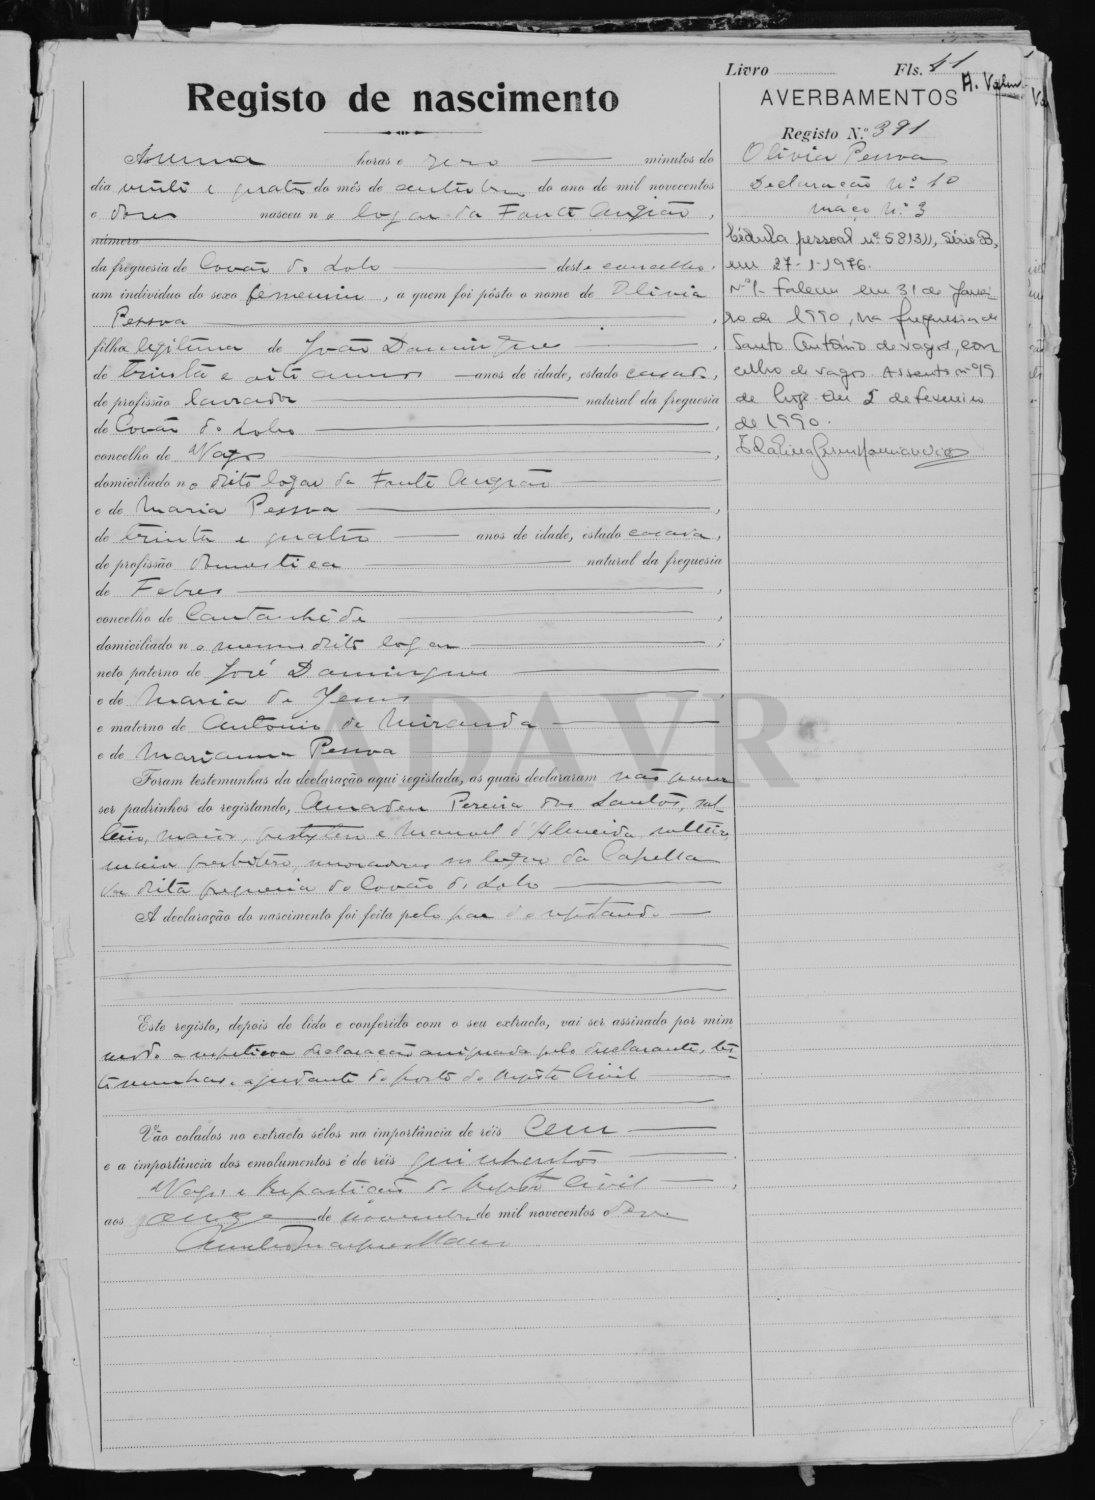 Livro Fls. 41
H. Valm.
Registo de nascimento
AVERBAMENTOS
Registo N.º 391
Olivia Pessoa
Declaração Nº 10
maço Nº 3
Cédula pessoal nº 581311, Série B,
em 27-1-1976.
Nº 1- Faleceu em 31 de Janei-
ro de 1990, na freguesia de
Santo António de Vagos, con-
celho de Vagos. Assento nº 19
de hoje. Em 5 de Fevereiro
de 1990.
A uma horas e zero minutos do
dia vinte e quatro do mês de outubro do ano de mil novecentos
e doze nasceu no logar da Fonte Angião,
número
da freguesia de Covão do Lobo deste concelho,
um indivíduo do sexo femenino, a quem foi pôsto o nome de Olivia
Pessoa,
filha legitima de João Domingues,
de trinta e oito annos anos de idade, estado casado,
de profissão lavrador natural da freguesia
de Covão do Lobo,
concelho de Vagos,
domiciliado no dito logar da Fonte Angião
e de Maria Pessoa,
de trinta e quatro anos de idade, estado casada,
de profissão domestica natural da freguesia
de Febres,
concelho de Cantanhede,
domiciliado no mesmo dito logar;
neto paterno de José Domingues
e de Maria de Jesus,
e materno de Antonio de Miranda
e de Marianna Pessoa
Foram testemunhas da declaração aqui registada, as quais declararam não querer
ser padrinhos do registando, Amadeu Pereira dos Santos, sol-
teiro, maior, e Manuel d'Almeida, solteiro,
maior, moradores no logar da Capella
da dita freguesia do Covão do Lobo
A declaração do nascimento foi feita pelo pae do registando
Este registo, depois de lido e conferido com o seu extracto, vai ser assinado por mim
a respetiva declaração assignada pelo declarante, tes-
temunhas e ajudante do posto do registo Civil
Vão colados no extracto sêlos na importância de réis Cem
e a importância dos emolumentos é de réis quinhentos
Vagos e Repartição do Registo Civil,
aos onze de novembro de mil novecentos e doze
ADAVR